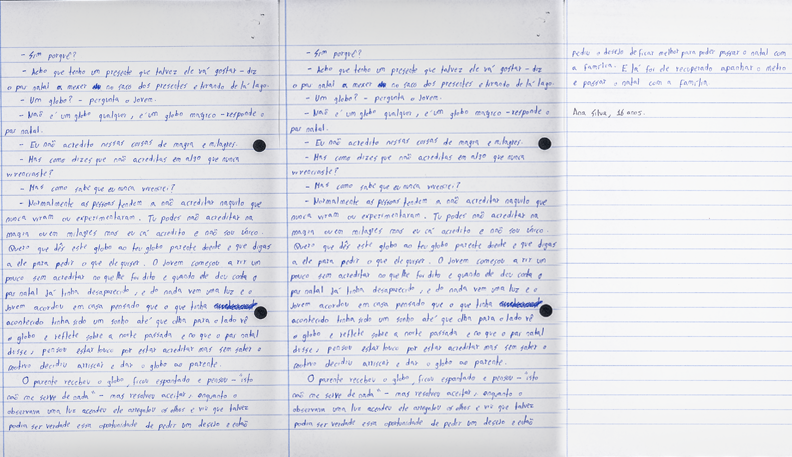 - Sim porquê?
- Acho que tenho um presente que talvez ele vá gostar - diz
o pai natal a mexer no saco dos presentes e tirando de lá lago.
- Um globo? - pergunta o Jovem.
- Não é um globo qualquer, é um globo magico - responde o
pai natal.
- Eu não acredito nessas coisas de magia e milagres.
- Mas como dizes que não acreditas em algo que nunca
vivenciaste?
- Mas como sabe que eu nunca vivenciei?
- Normalmente as pessoas tendem a não acreditar naquilo que
nunca viram ou experimentaram. Tu podes não acreditar na
magia ou em milagres mas eu cá acredito e não sou único.
Quero que dês este globo ao teu parente doente e que digas
a ele para pedir o que ele quiser. O Jovem começou a rir um
pouco sem acreditar no que lhe foi dito e quando deu conta o
pai natal já tinha desaparecido, e do nada vem uma luz e o
Jovem acordou em casa pensado que o que tinha
acontecido tinha sido um sonho até que olha para o lado vê
o globo e reflete sobre a noite passada e no que o pai natal
disse, pensou estar louco por estar acreditar mas sem saber o
motivo decidiu arriscar e dar o globo ao parente.
O parente recebeu o globo, ficou espantado e pensou - "isto
não me serve de nada" - mas resolveu aceitar, enquanto o
observava uma luz acendeu ele arregalou os olhos e viu que talvez
podia ser verdade essa oportunidade de pedir um desejo e então
- Sim porquê?
- Acho que tenho um presente que talvez ele vá gostar - diz
o pai natal a mexer no saco dos presentes e tirando de lá lago.
- Um globo? - pergunta o Jovem.
- Não é um globo qualquer, é um globo magico - responde o
pai natal.
- Eu não acredito nessas coisas de magia e milagres.
- Mas como dizes que não acreditas em algo que nunca
vivenciaste?
- Mas como sabe que eu nunca vivenciei?
- Normalmente as pessoas tendem a não acreditar naquilo que
nunca viram ou experimentaram. Tu podes não acreditar na
magia ou em milagres mas eu cá acredito e não sou único.
Quero que dês este globo ao teu parente doente e que digas
a ele para pedir o que ele quiser. O Jovem começou a rir um
pouco sem acreditar no que lhe foi dito e quando deu conta o
pai natal já tinha desaparecido, e do nada vem uma luz e o
Jovem acordou em casa pensado que o que tinha
acontecido tinha sido um sonho até que olha para o lado vê
o globo e reflete sobre a noite passada e no que o pai natal
disse, pensou estar louco por estar acreditar mas sem saber o
motivo decidiu arriscar e dar o globo ao parente.
O parente recebeu o globo, ficou espantado e pensou - "isto
não me serve de nada" - mas resolveu aceitar, enquanto o
observava uma luz acendeu ele arregalou os olhos e viu que talvez
podia ser verdade essa oportunidade de pedir um desejo e então
pediu o desejo de ficar melhor para poder passar o natal com
a família. E lá foi ele recuperado apanhar o metro
e passar o natal com a família.
Ana Silva, 16 anos.